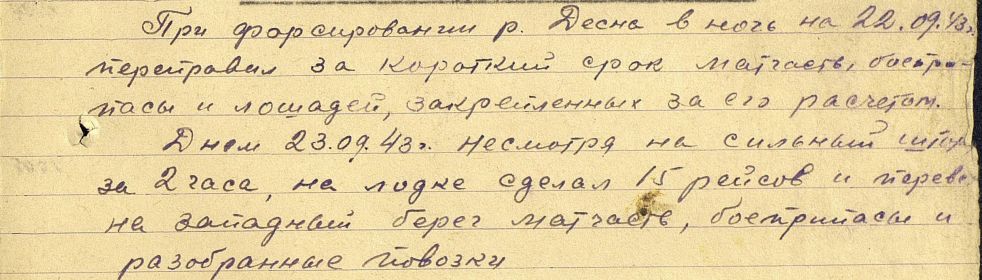 При форсировании р. Десна в ночь на 22.09.43г.
переправил за короткий срок матчасть, боепри-
пасы и лошадей, закрепленных за его расчетом.
Днем 23.09.43г. несмотря на сильный шторм
за 2 часа, на лодке сделал 15 рейсов и перевез
на западный берег матчасть, боеприпасы и
разобранные повозки